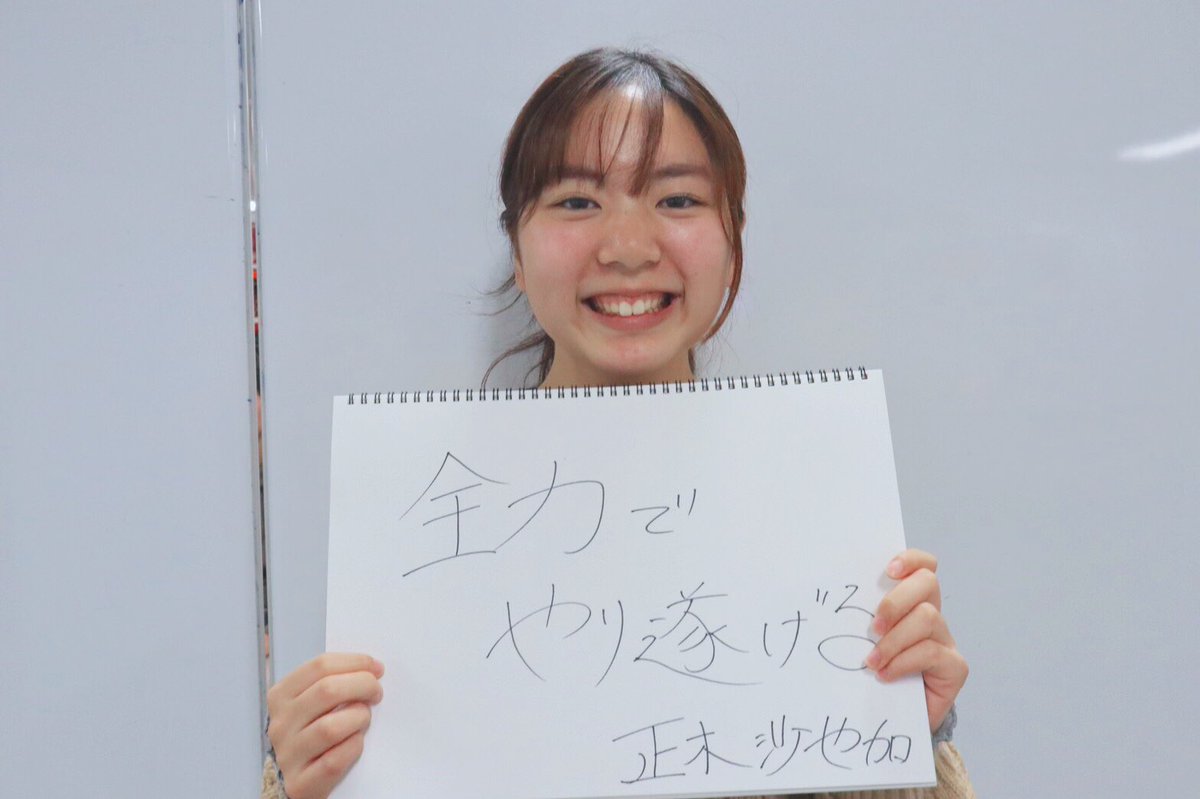 全力で
やり遂げる
正木沙也加